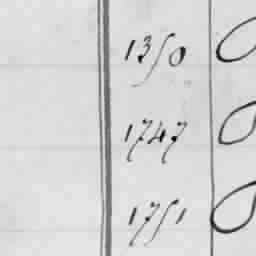 1350
1747
1751